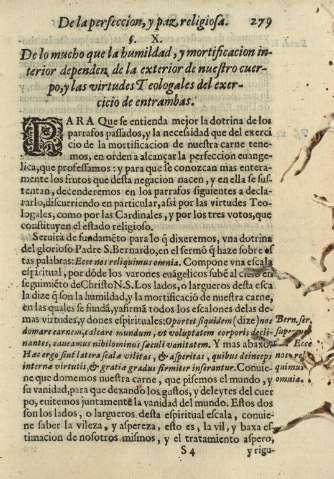 De la perfeccion, y paz religiosa. 279
§. X.
De lo mucho que la humildad, y mortificacion in-
terior dependen de la exterior de nuestro cuer-
po, y las virtudes Teologales del exer-
cicio de entrambas.
PARA Que se entienda mejor la dotrina de los
parrafos passados, y la necesidad que del exerci
cio de la mortificacion de nuestra carne tene-
mos, en orden a alcançar la perfeccion euange-
lica, que professamos: y para que se conozcan mas entera-
mente los frutos que desta negacion nacen, y en ella se sus-
tentan, decenderemos en los parrafos siguientes a decla-
rarlo, discurriendo en particular, assi por las virtudes Teo-
logales, como por las Cardinales, y por los tres votos, que
constituyen el estado religioso.
Seruirà de fundamẽto para lo q̃ dixeremos, vna dotrina
del glorioso Padre S. Bernardo, en el sermõ q̃ haze sobre es
tas palabras: Ecce nos reliquimus omnia. Compone vna escala
espiritual, por dõde los varones euãgelicos subẽ al cielo en
seguimiẽto de Christo N.S. Los lados, o largueros desta esca
la dize q̃ son la humildad, y la mortificaciõ de nuestra carne,
en las quales se fũda, y afirmã todos los escalones de las de-
mas virtudes, y dones espirituales: Oportet siquidem (dize) nos
domare carnem, calcare mundum, vt voluptatem corporis decli-
nantes, caueamus nihilominus sæculi vanitatem. Y mas abaxo:
Hæc ergo sint latera scalæ vilitas, & asperitas, quibus deinceps
internæ virtutis, & gratiæ gradus firmiter inserantur. Conuie-
ne que domemos nuestra carne, que pisemos el mundo, y
su vanidad, para que dexando los gustos, y deleytes del cuer
po, euitemos juntamente la vanidad del mundo. Estos dos
son los lados, o largueros desta espiritual escala, conuie-
ne saber la vileza, y aspereza, esto es, la vil, y baxa es
timacion de nosotros mismos, y el tratamiento aspero,
S 4 y rigu-
Bern. ser.
Super
Ecce
nos re
quimus
omnia.